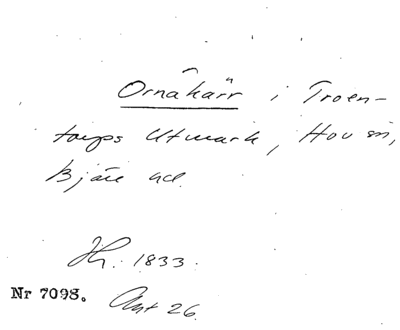 Ornakärr i Troen-
torps Utmark, Hov sn,
Bjäre hd.
Jh. 1833.
Nr 7098. Ant 26.